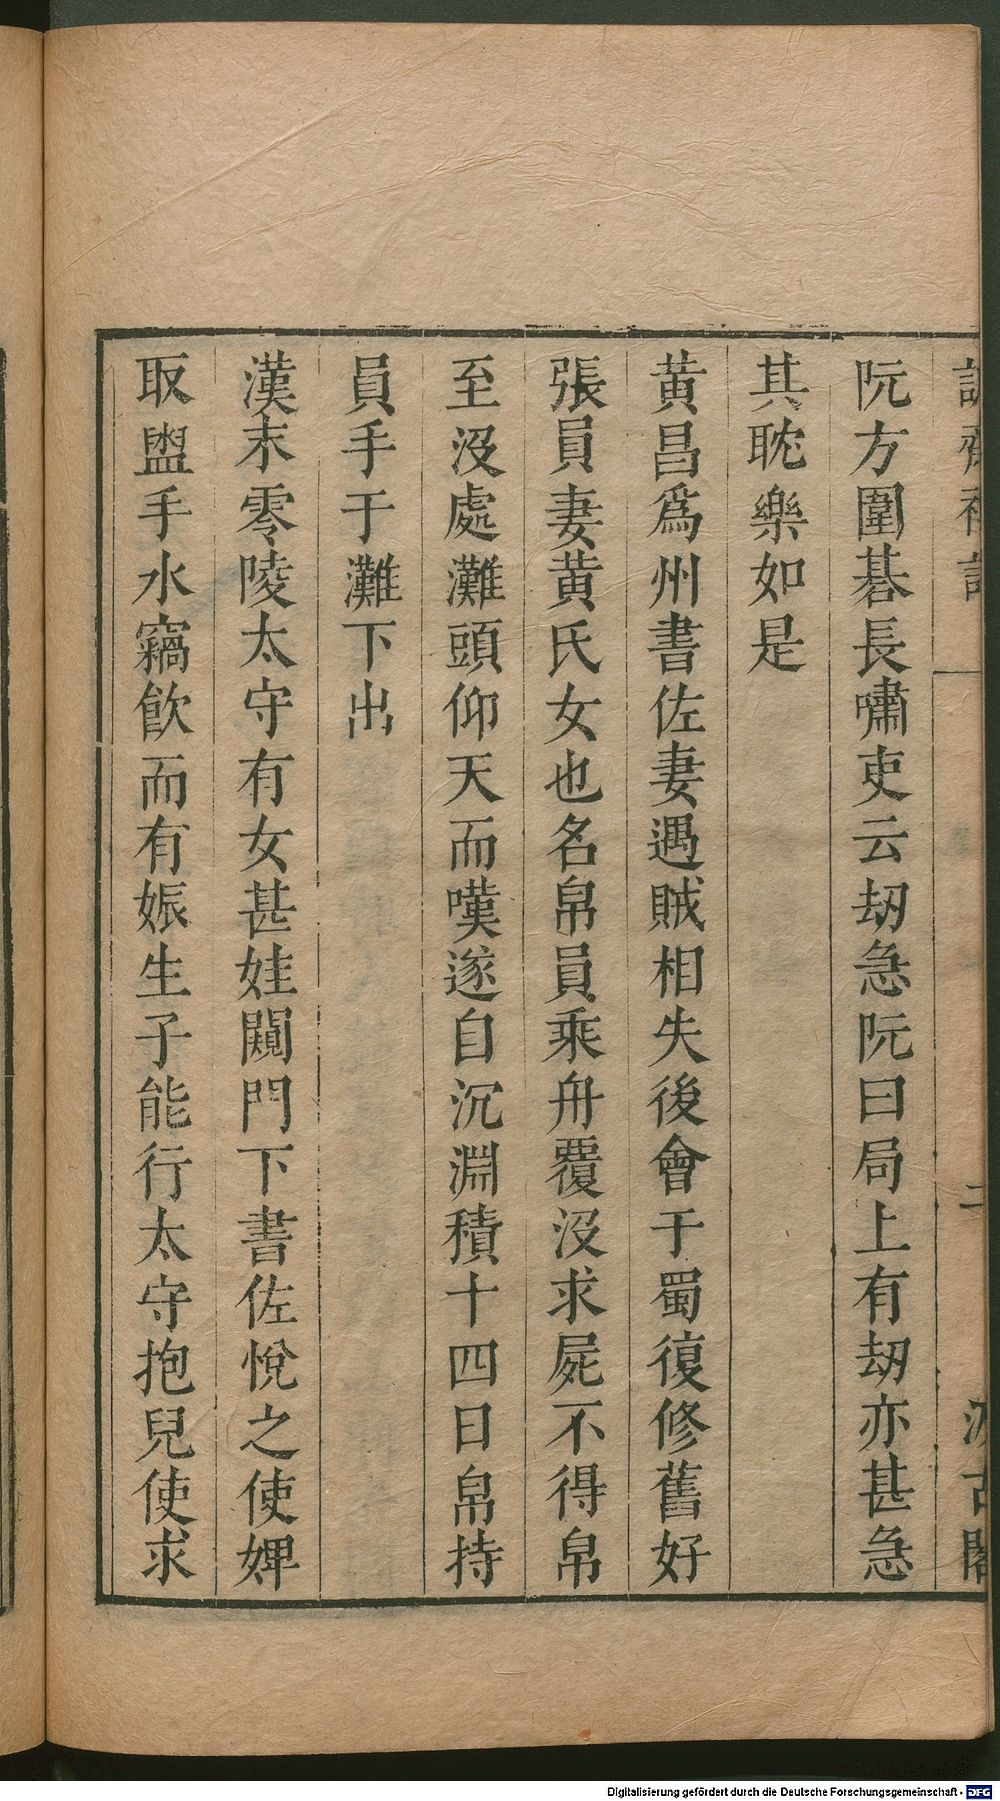 阮方圍碁長嘯吏云劫急阮曰局上有劫亦甚急
其耽樂如是
黄昌爲州書佐妻遇賊相失後會于蜀復修舊好
張員妻黄氏女也名帛員乘舟覆没求屍不得帛
至没處灘頭仰天而嘆遂自沉淵積十四日帛持
員手于灘下出
漢末零陵太守有女甚娃闚門下書佐悅之使婢
取盥手水竊飮而有娠生子能行太守抱兒使求
Digitalisierung gefördert durch die Deutsche Forschungsgemeinschaft - DFG